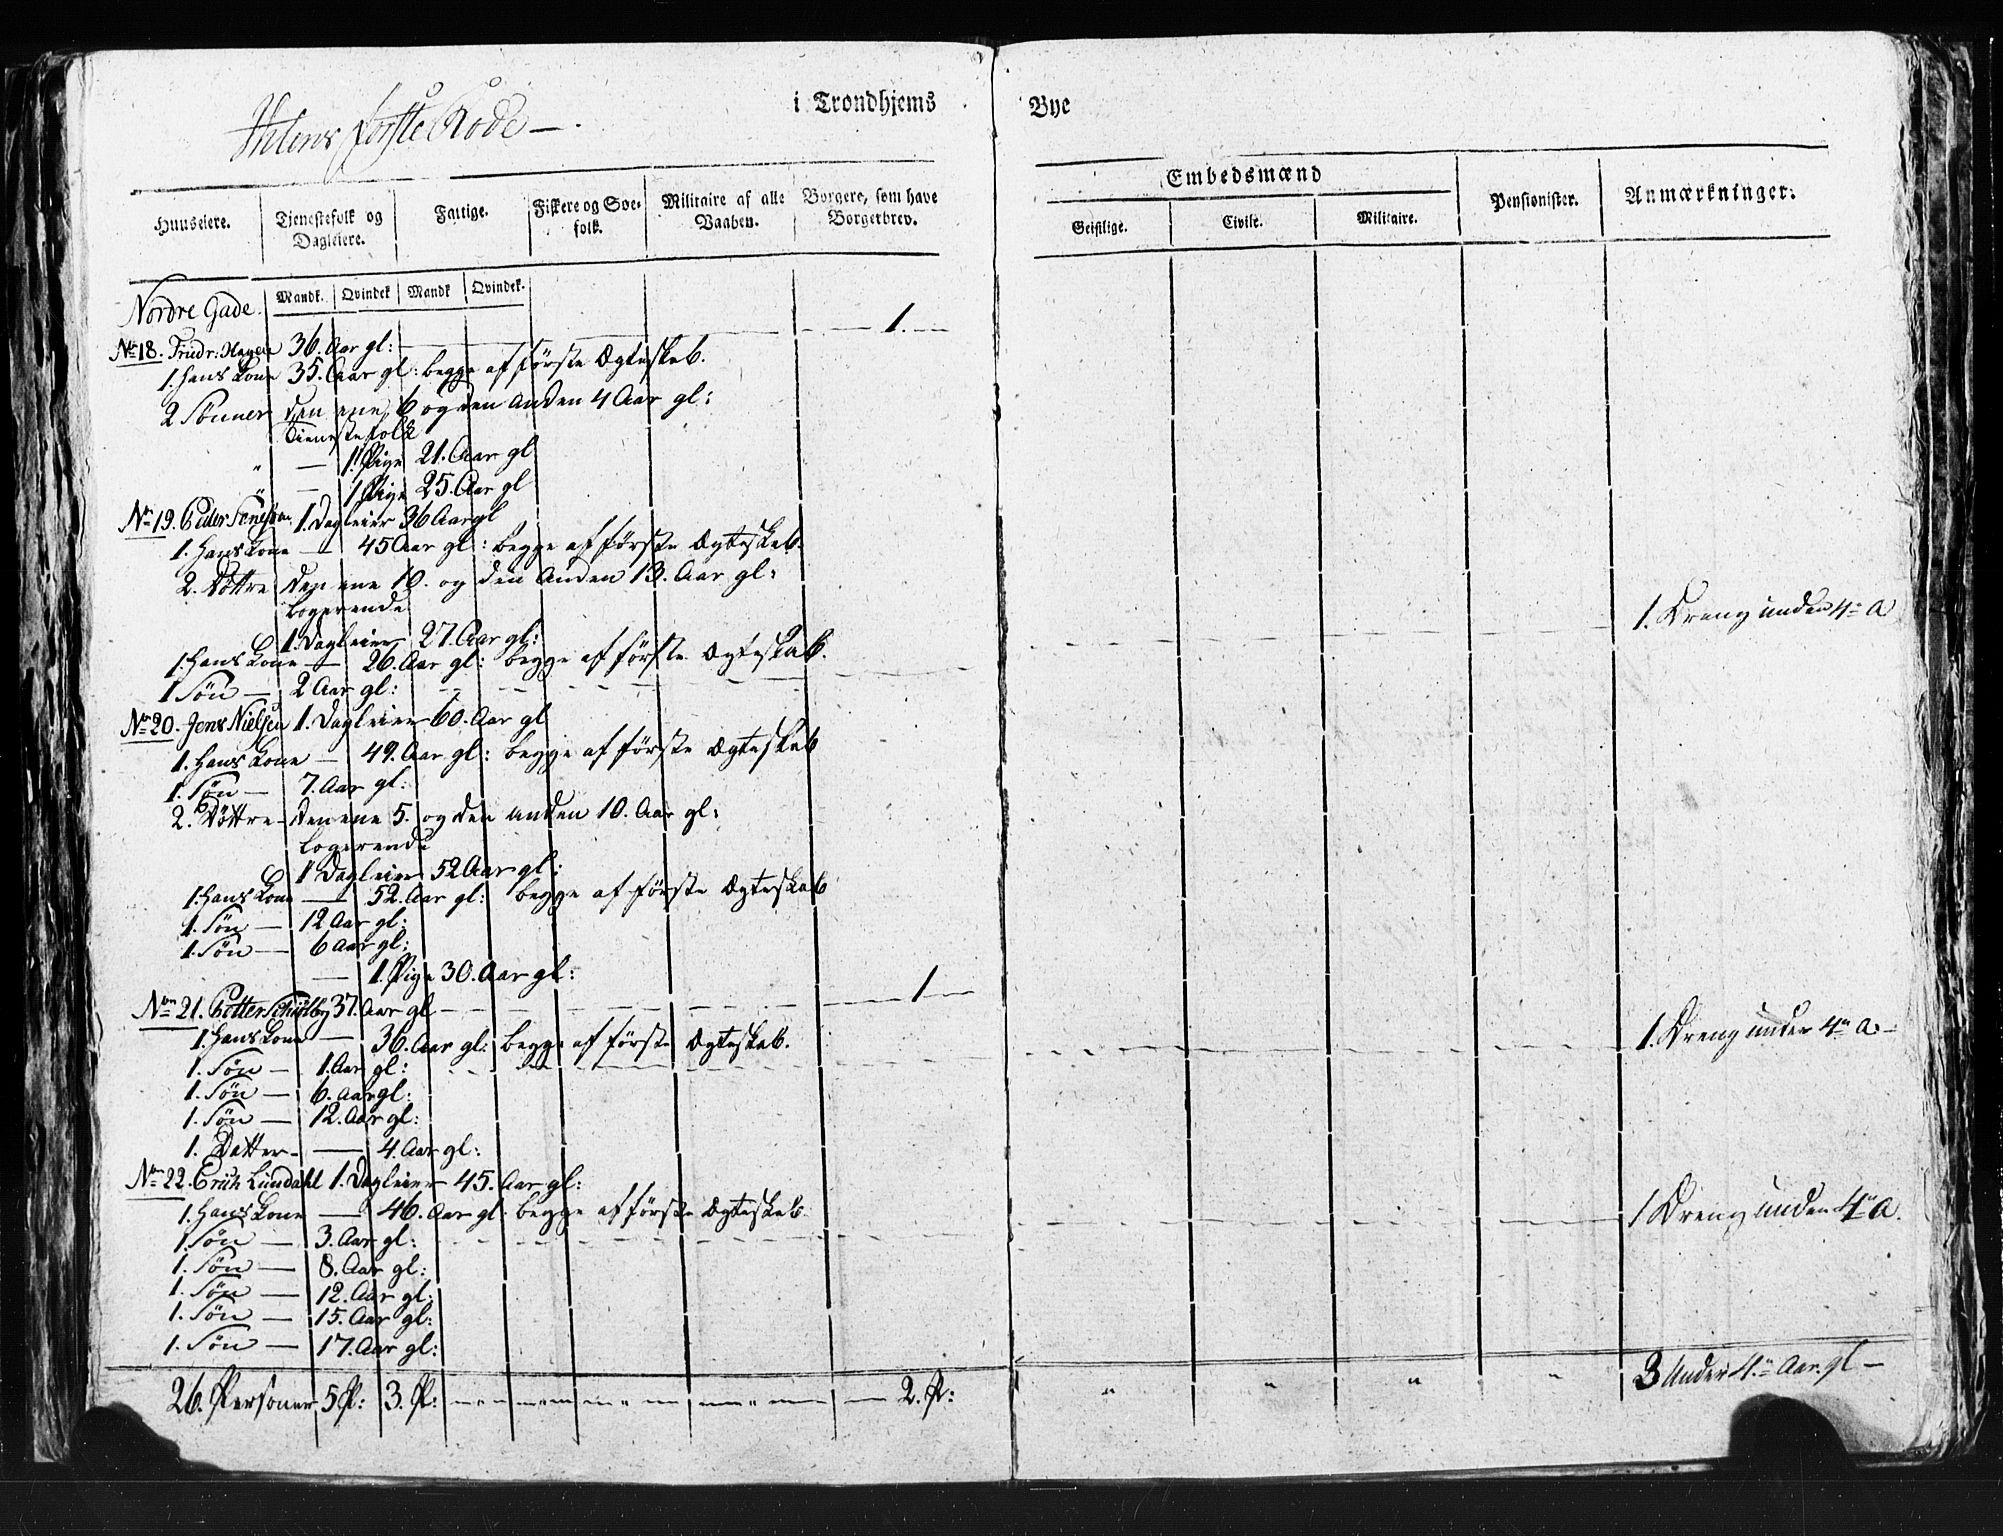 Ihlens første Rode —
i Trondhjems Bye
Huuseiere. Tjenestefolk og Dagleiere. Fattige. Fiskere og Søefolk. Militaire af alle Vaaben. Borgere, som have Borgerbrev. Embedsmænd Pensionister. Anmærkninger.
Geistlige. Civile. Militaire.
Mandk. Qvindek Mandk Qvindek.
Nordre Gade.
No 18. Fridr: Hagen 36. Aar gl: — 1. —
1. Hans Kone 35. Aar gl: begge af første Ægteskab.
2 Sønner den ene 6 og den anden 4 Aar gl:
Tienestefolk
" — 1 Pige 21. Aar gl
" — 1 Pige 25. Aar gl
No 19. Peder 1. Dagleier 36 Aar gl
1. Hans Kone — 45 Aar gl: begge af første Ægteskab.
2. Døttre den ene 10. og den anden 13. Aar gl:
Logerende
1 Dagleier 27. Aar gl:
1. Hans Kone — 26. Aar gl: begge af første Ægteskab.
1 Søn — 2 Aar gl: — 1. Dreng under 4re A
No 20. Jens Nielsen 1. Dagleier 60. Aar gl
1. Hans Kone — 49. Aar gl: begge af første Ægteskab
1. Søn — 7. Aar gl:
2. Døttre — den ene 5. og den anden 10. Aar gl:
Logerende
1 Dagleier 52 Aar gl:
1. Hans Kone — 52. Aar gl: begge af første Ægteskab
1. Søn — 12 Aar gl:
1. Søn — 6 Aar gl:
— 1. Pige 30. Aar gl:
No 21. Petter Schiølby 37. Aar gl — 1 —
1. Hans Kone — 36. Aar gl: begge af første Ægteskab.
1. Søn — 1. Aar gl: — 1. Dreng under 4re A —
1. Søn — 6. Aar gl:
1. Søn — 12. Aar gl:
1. Datter — 4. Aar gl:
No 22. Erich Lundahl 1. Dagleier 45. Aar gl:
1. Hans Kone — 46. Aar gl: begge af første Ægteskab.
1. Søn — 3. Aar gl: — 1 Dreng under 4re A.
1. Søn — 8. Aar gl:
1. Søn — 12. Aar gl:
1. Søn — 15. Aar gl:
1. Søn — 17. Aar gl:
26. Personer 5 P: 3. P: — 2. P: " " " " 3 Under 4re Aar. gl —